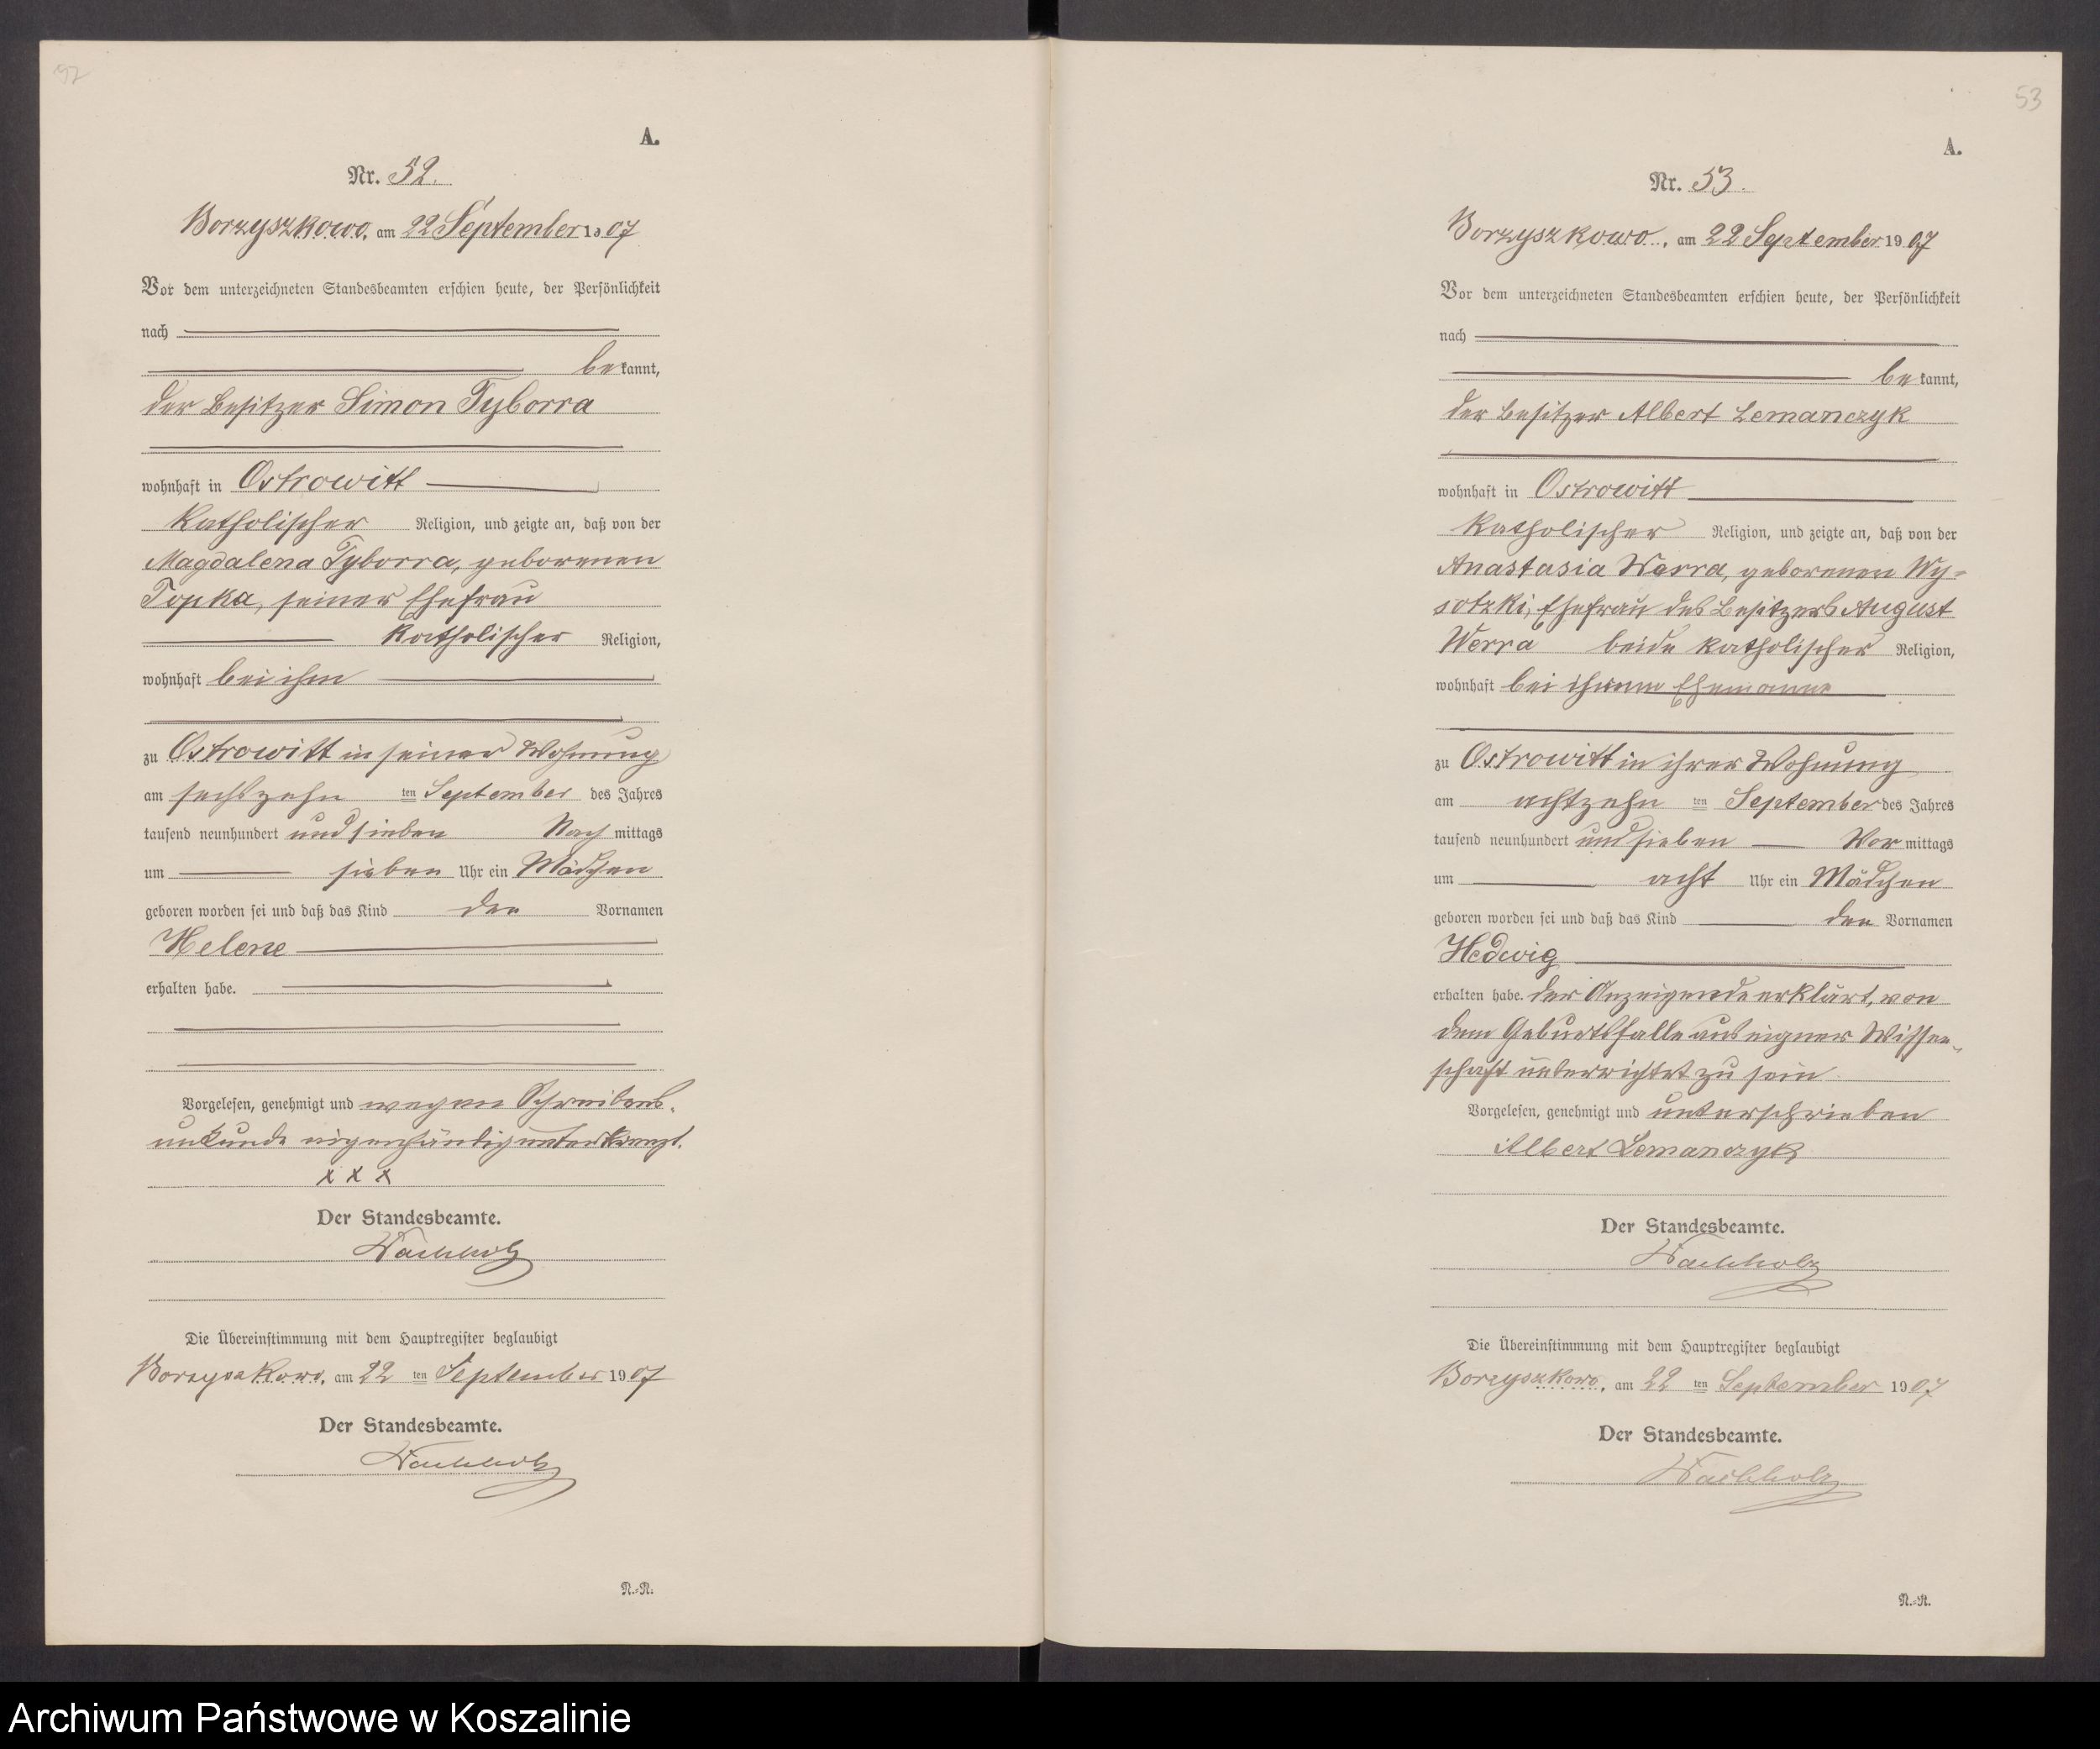 92
A.
Nr. 52.
Borzyszkowo, am 22 September 1907
Vor dem unterzeichneten Standesbeamten erschien heute, der Persönlichkeit
nach
bekannt,
der Besitzer Simon Tyborra
wohnhaft in Ostrowitt
katholischer Religion, und zeigte an, daß von der
Magdalena Tyborra, geborenen
Topka, seiner Ehefrau
katholischer Religion,
wohnhaft bei ihm
zu Ostrowitt in seiner Wohnung
am sechszehn ten September des Jahres
tausend neunhundert und sieben Nach mittags
um sieben Uhr ein Mädchen
geboren worden sei und daß das Kind den Vornamen
Helene
erhalten habe.
Vorgelesen, genehmigt und wegen Schreibens-
unkunde eigenhändig unterkreuzt.
x x x
Der Standesbeamte.
Wachholz
Die Übereinstimmung mit dem Hauptregister beglaubigt
Borzyszkowo, am 22 ten September 1907
Der Standesbeamte.
Wachholz
N.=R.
53
A.
Nr. 53.
Borzyszkowo, am 22 September 1907
Vor dem unterzeichneten Standesbeamten erschien heute, der Persönlichkeit
nach
bekannt,
der Besitzer Albert Lemanczyk
wohnhaft in Ostrowitt
katholischer Religion, und zeigte an, daß von der
Anastasia Werra, geborenen Wy=
sotzki, Ehefrau des Besitzers August
Werra beide katholischer Religion,
wohnhaft bei ihrem Ehemanne
zu Ostrowitt in ihrer Wohnung
am achtzehn ten September des Jahres
tausend neunhundert und sieben Vor mittags
um acht Uhr ein Mädchen
geboren worden sei und daß das Kind den Vornamen
Hedwig
erhalten habe. der Anzeigende erklärt, von
dem Geburtsfalle aus eigner Wissen-
schaft unterrichtet zu sein
Vorgelesen, genehmigt und unterschrieben
Albert Lemanczyk
Der Standesbeamte.
Wachholz
Die Übereinstimmung mit dem Hauptregister beglaubigt
Borzyszkowo, am 22 ten September 1907
Der Standesbeamte.
Wachholz
N.=R.
Archiwum Państwowe w Koszalinie